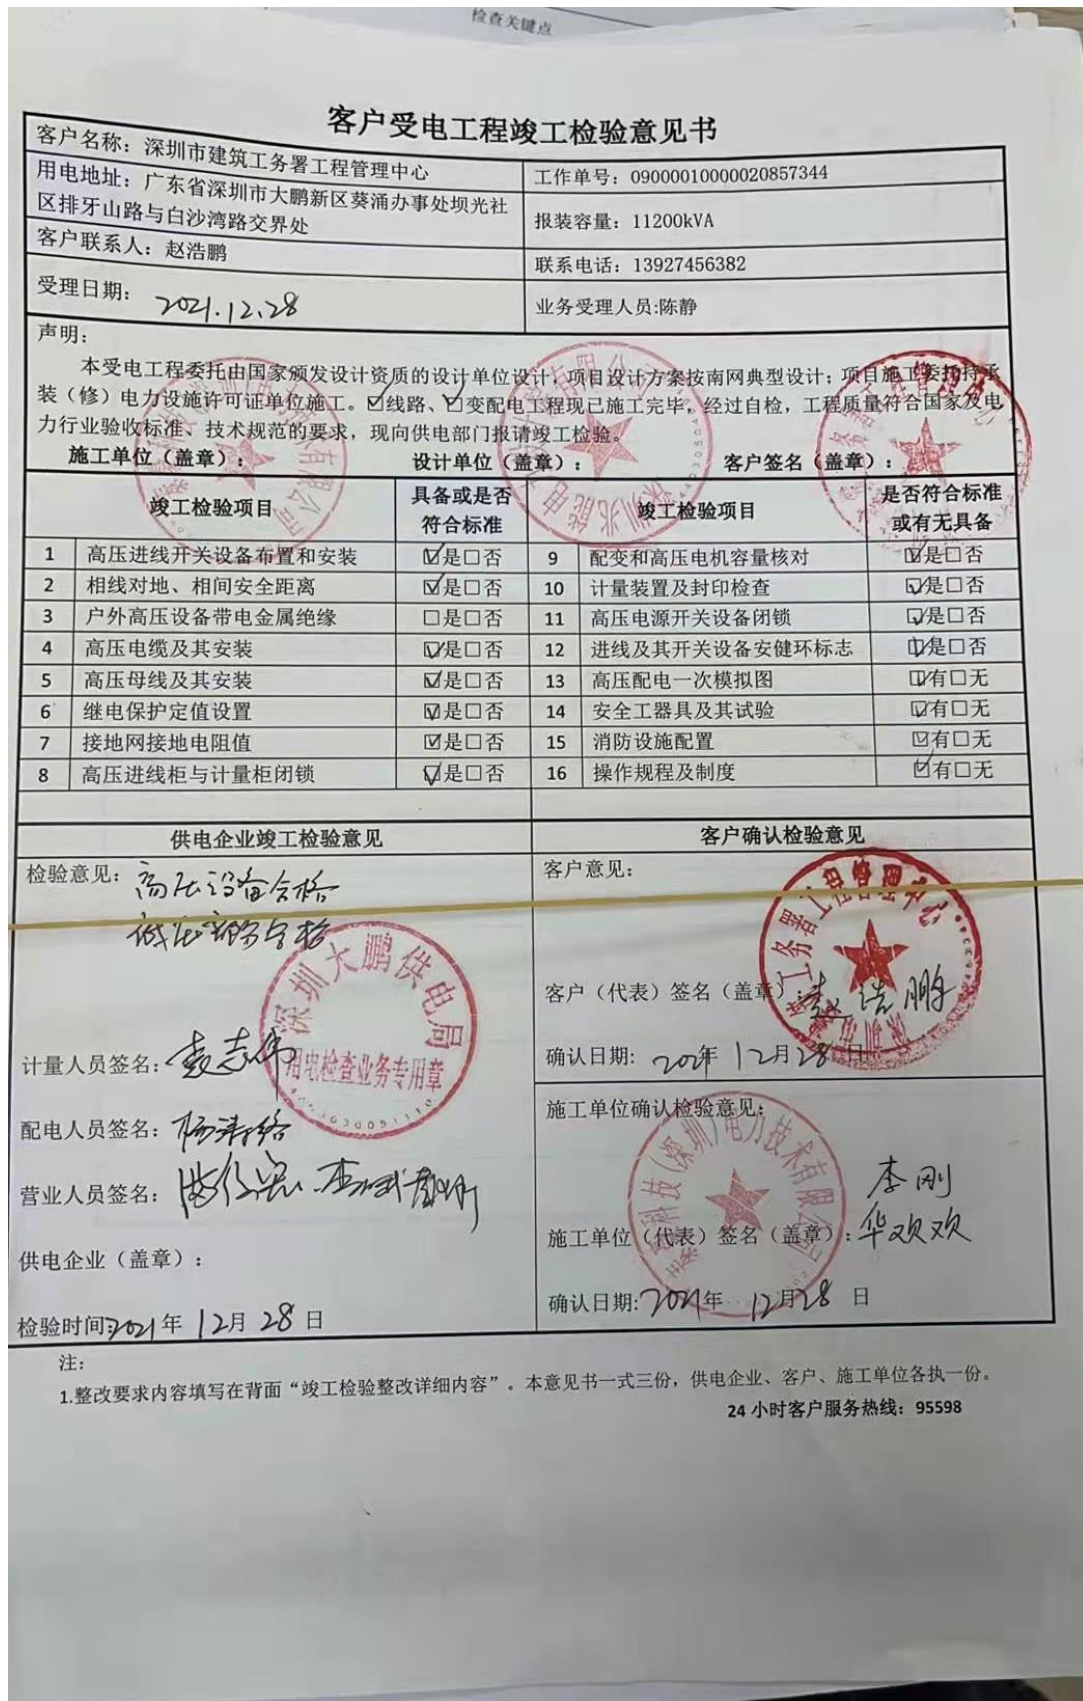 检查关键点
客户受电工程竣工检验意见书
客户名称：深圳市建筑工务署工程管理中心
工作单号：09000010000020857344
用电地址：广东省深圳市大鹏新区葵涌办事处坝光社
区排牙山路与白沙湾路交界处
报装容量：11200kVA
客户联系人：赵浩鹏
联系电话：13927456382
受理日期：2021.12.28
业务受理人员:陈静
声明：
本受电工程委托由国家颁发设计资质的设计单位设计，项目设计方案按南网典型设计；项目施工委托持承
装（修）电力设施许可证单位施工。☑线路、☑变配电工程现已施工完毕，经过自检，工程质量符合国家及电
力行业验收标准、技术规范的要求，现向供电部门报请竣工检验。
施工单位（盖章）： 设计单位（盖章）： 客户签名（盖章）：
竣工检验项目 具备或是否符合标准 竣工检验项目 是否符合标准或有无具备
1 高压进线开关设备布置和安装 ☑是□否 9 配变和高压电机容量核对 ☑是□否
2 相线对地、相间安全距离 ☑是□否 10 计量装置及封印检查 ☑是□否
3 户外高压设备带电金属绝缘 □是□否 11 高压电源开关设备闭锁 ☑是□否
4 高压电缆及其安装 ☑是□否 12 进线及其开关设备安健环标志 ☑是□否
5 高压母线及其安装 ☑是□否 13 高压配电一次模拟图 ☑有□无
6 继电保护定值设置 ☑是□否 14 安全工器具及其试验 ☑有□无
7 接地网接地电阻值 ☑是□否 15 消防设施配置 ☑有□无
8 高压进线柜与计量柜闭锁 ☑是□否 16 操作规程及制度 ☑有□无
供电企业竣工检验意见 客户确认检验意见
检验意见：高压设备合格
低压部分合格
深圳大鹏供电局
用电检查业务专用章
计量人员签名：
配电人员签名：
营业人员签名：
供电企业（盖章）：
检验时间:2021年12月28日
客户意见：
工务署工程管理中心
客户（代表）签名（盖章）：赵浩鹏
确认日期：2021年12月28日
施工单位确认检验意见：
科技（深圳）电力技术有限公司
李刚
施工单位（代表）签名（盖章）：华欢欢
确认日期:2021年12月28日
注：
1.整改要求内容填写在背面“竣工检验整改详细内容”。本意见书一式三份，供电企业、客户、施工单位各执一份。
24小时客户服务热线：95598